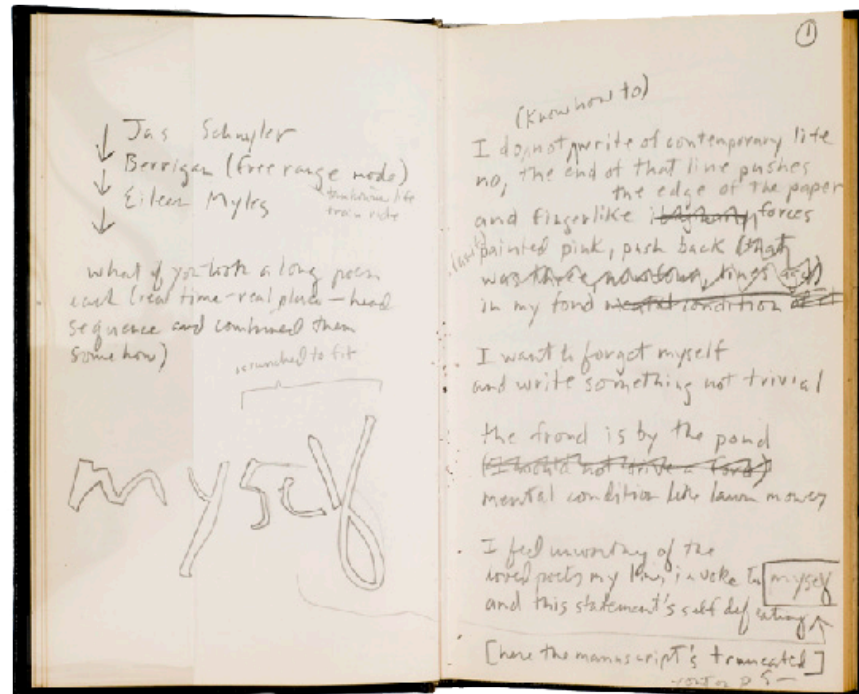 ↓ Jas Schuyler
↓ Berrigan (free range mode)
↓ Eileen Myles
train ride
what if you took a long poem
each (real time-real place-head
sequence and combined them
somehow)
scrunched to fit
myself
①
(know how to)
I do not write of contemporary life
no, the end of that line pushes
the edge of the paper
and fingerlike forces
painted pink, push back (that
was three, now four, lines ago)
in my fond mental condition
I want to forget myself
and write something not trivial
the frond is by the pond
(I would not drive a ford)
mental condition like lawn mower
I feel unworthy of the
loved poets my lines invoke to myself
and this statement's self defeating
[here the manuscript's truncated]